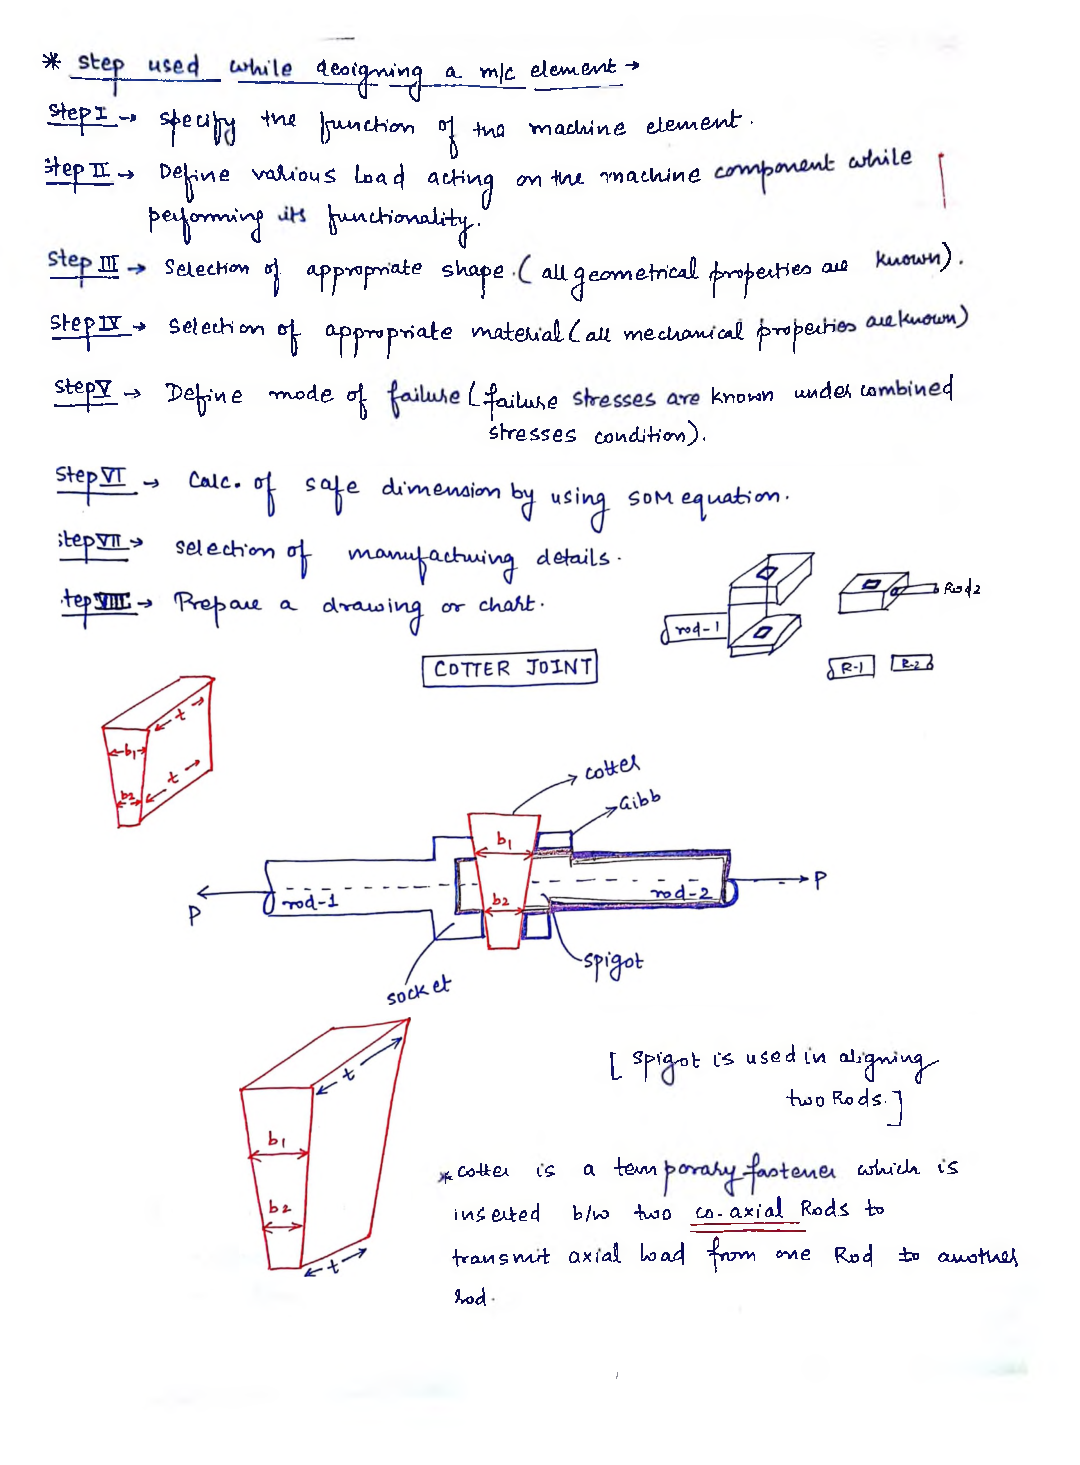 * Step used while designing a m/c element →
Step I → specify the function of the machine element.
Step II → Define various Load acting on the machine component while
performing its functionality.
Step III → Selection of appropriate shape. (all geometrical properties are known).
Step IV → Selection of appropriate material (all mechanical properties are known)
Step V → Define mode of failure (failure stresses are known under combined
stresses condition).
Step VI → Calc. of safe dimension by using SOM equation.
Step VII → selection of manufacturing details.
Step VIII → Prepare a drawing or chart.
rod-1
Rod 2
R-1
R-2
COTTER JOINT
t
b1
t
b2
cotter
Gibb
b1
P
rod-1
b2
rod-2
P
socket
spigot
t
b1
b2
t
[ Spigot is used in aligning
two Rods.]
* Cotter is a temporary fastener which is
inserted b/w two co-axial Rods to
transmit axial load from one Rod to another
rod.